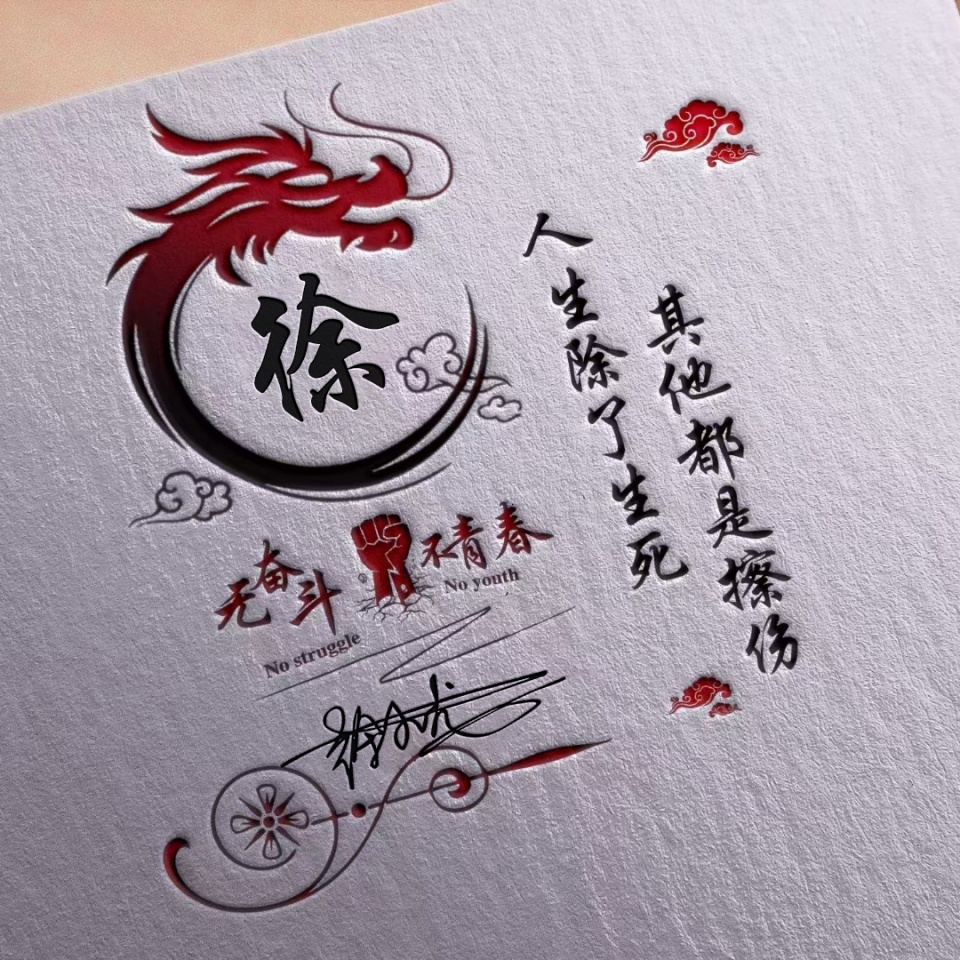 徐
无奋斗
不青春
No struggle
No youth
人生除了生死
其他都是擦伤